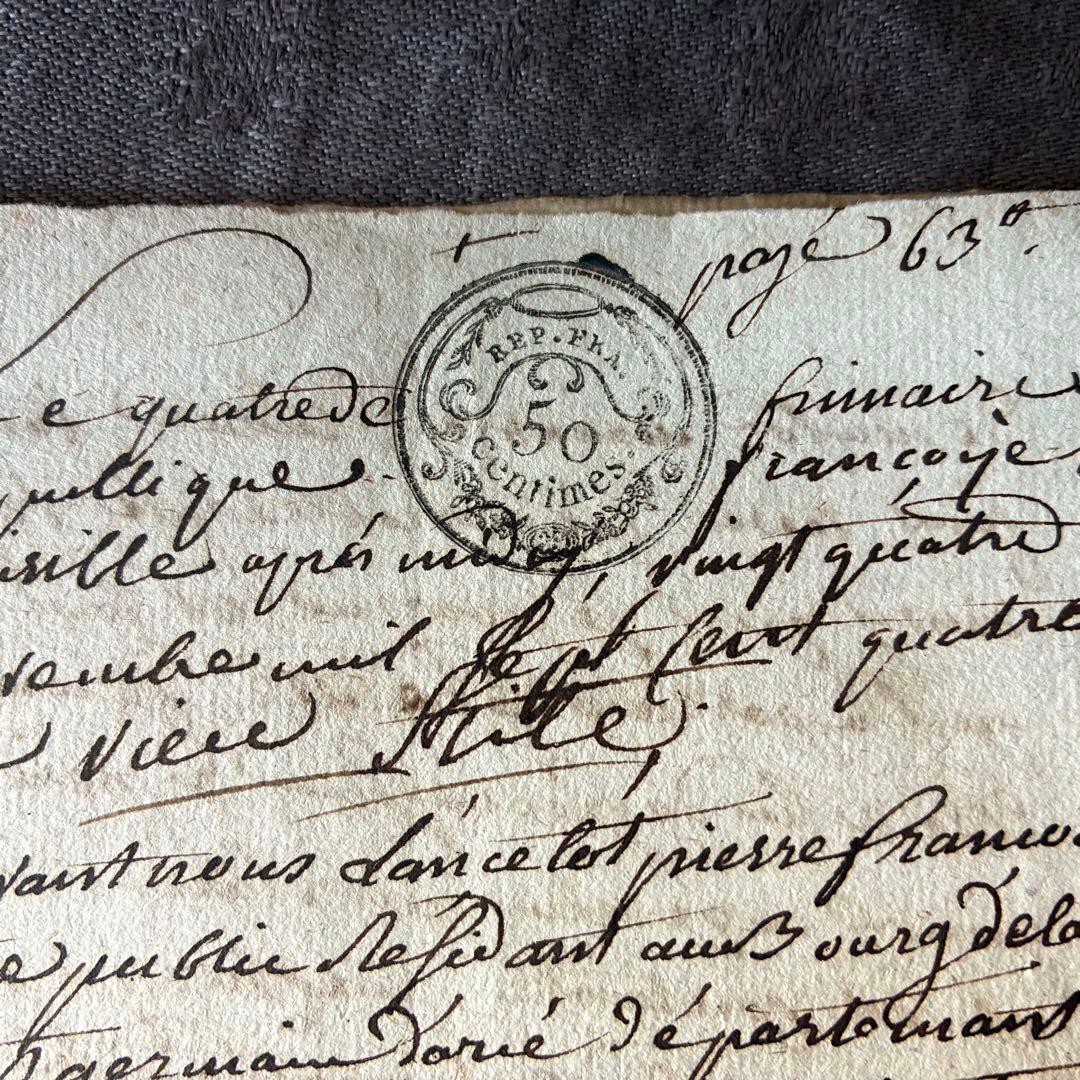 + payé 63tt.
REP. FRA.
50
centimes.
e quatre de frimaire
publique francoise
isible apres midy, vingt quatre
vembre mil sept Cent quatre
vieux Stile,
vant nous Lancelot pierre franco
e public Residant au Bourg dela
germain d'arcé départemant